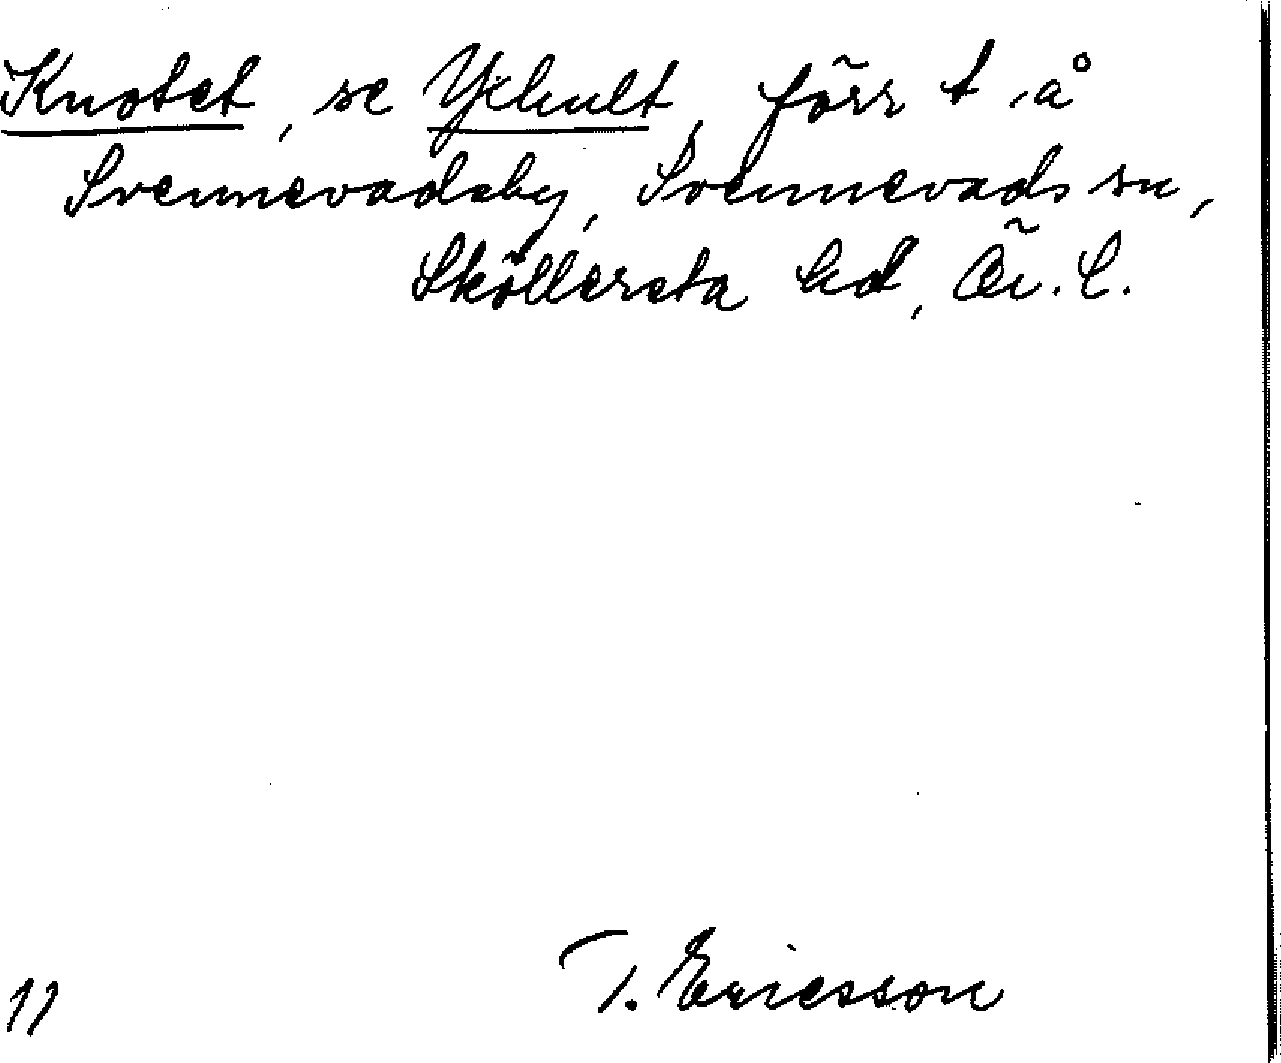 Knotet, se Ykhult, förr t. å
Svennevadsby, Svennevads sn,
Sköllersta hd, Ör. l.
T. Ericsson
11